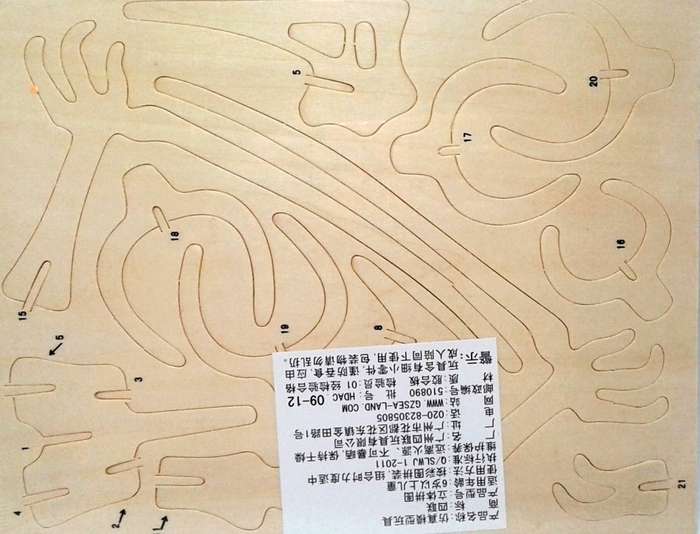 5
20
17
18
16
15
19
8
5
3
1
4
2
1
21
产品名称:仿真模型玩具
商 标:四联
产品型号:立体拼图
适用年龄:6岁以上儿童
使用方法:按彩图拼装,组合时力度适中
执行标准:Q/SLWJ1-2011
维护保养:远离火源、不曝晒,保持干燥
厂 名:广州四联玩具有限公司
厂 址:广州市花都区花东镇金田路1号
电 话:020-82305805
网 站:WWW.GZSEA-LAND.COM
邮政编号:510890 批 号:HDAC 09-12
材 质:胶合板 检验员:01 经检验合格
警示:玩具含有细小零件,谨防吞食,应由
成人陪同下使用,包装物请勿乱扔.